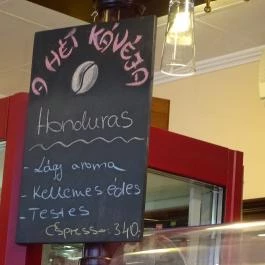 A HÉT KÁVÉJA
Honduras
- Lágy aroma
- Kellemes édes
- Testes
Espresso: 340.